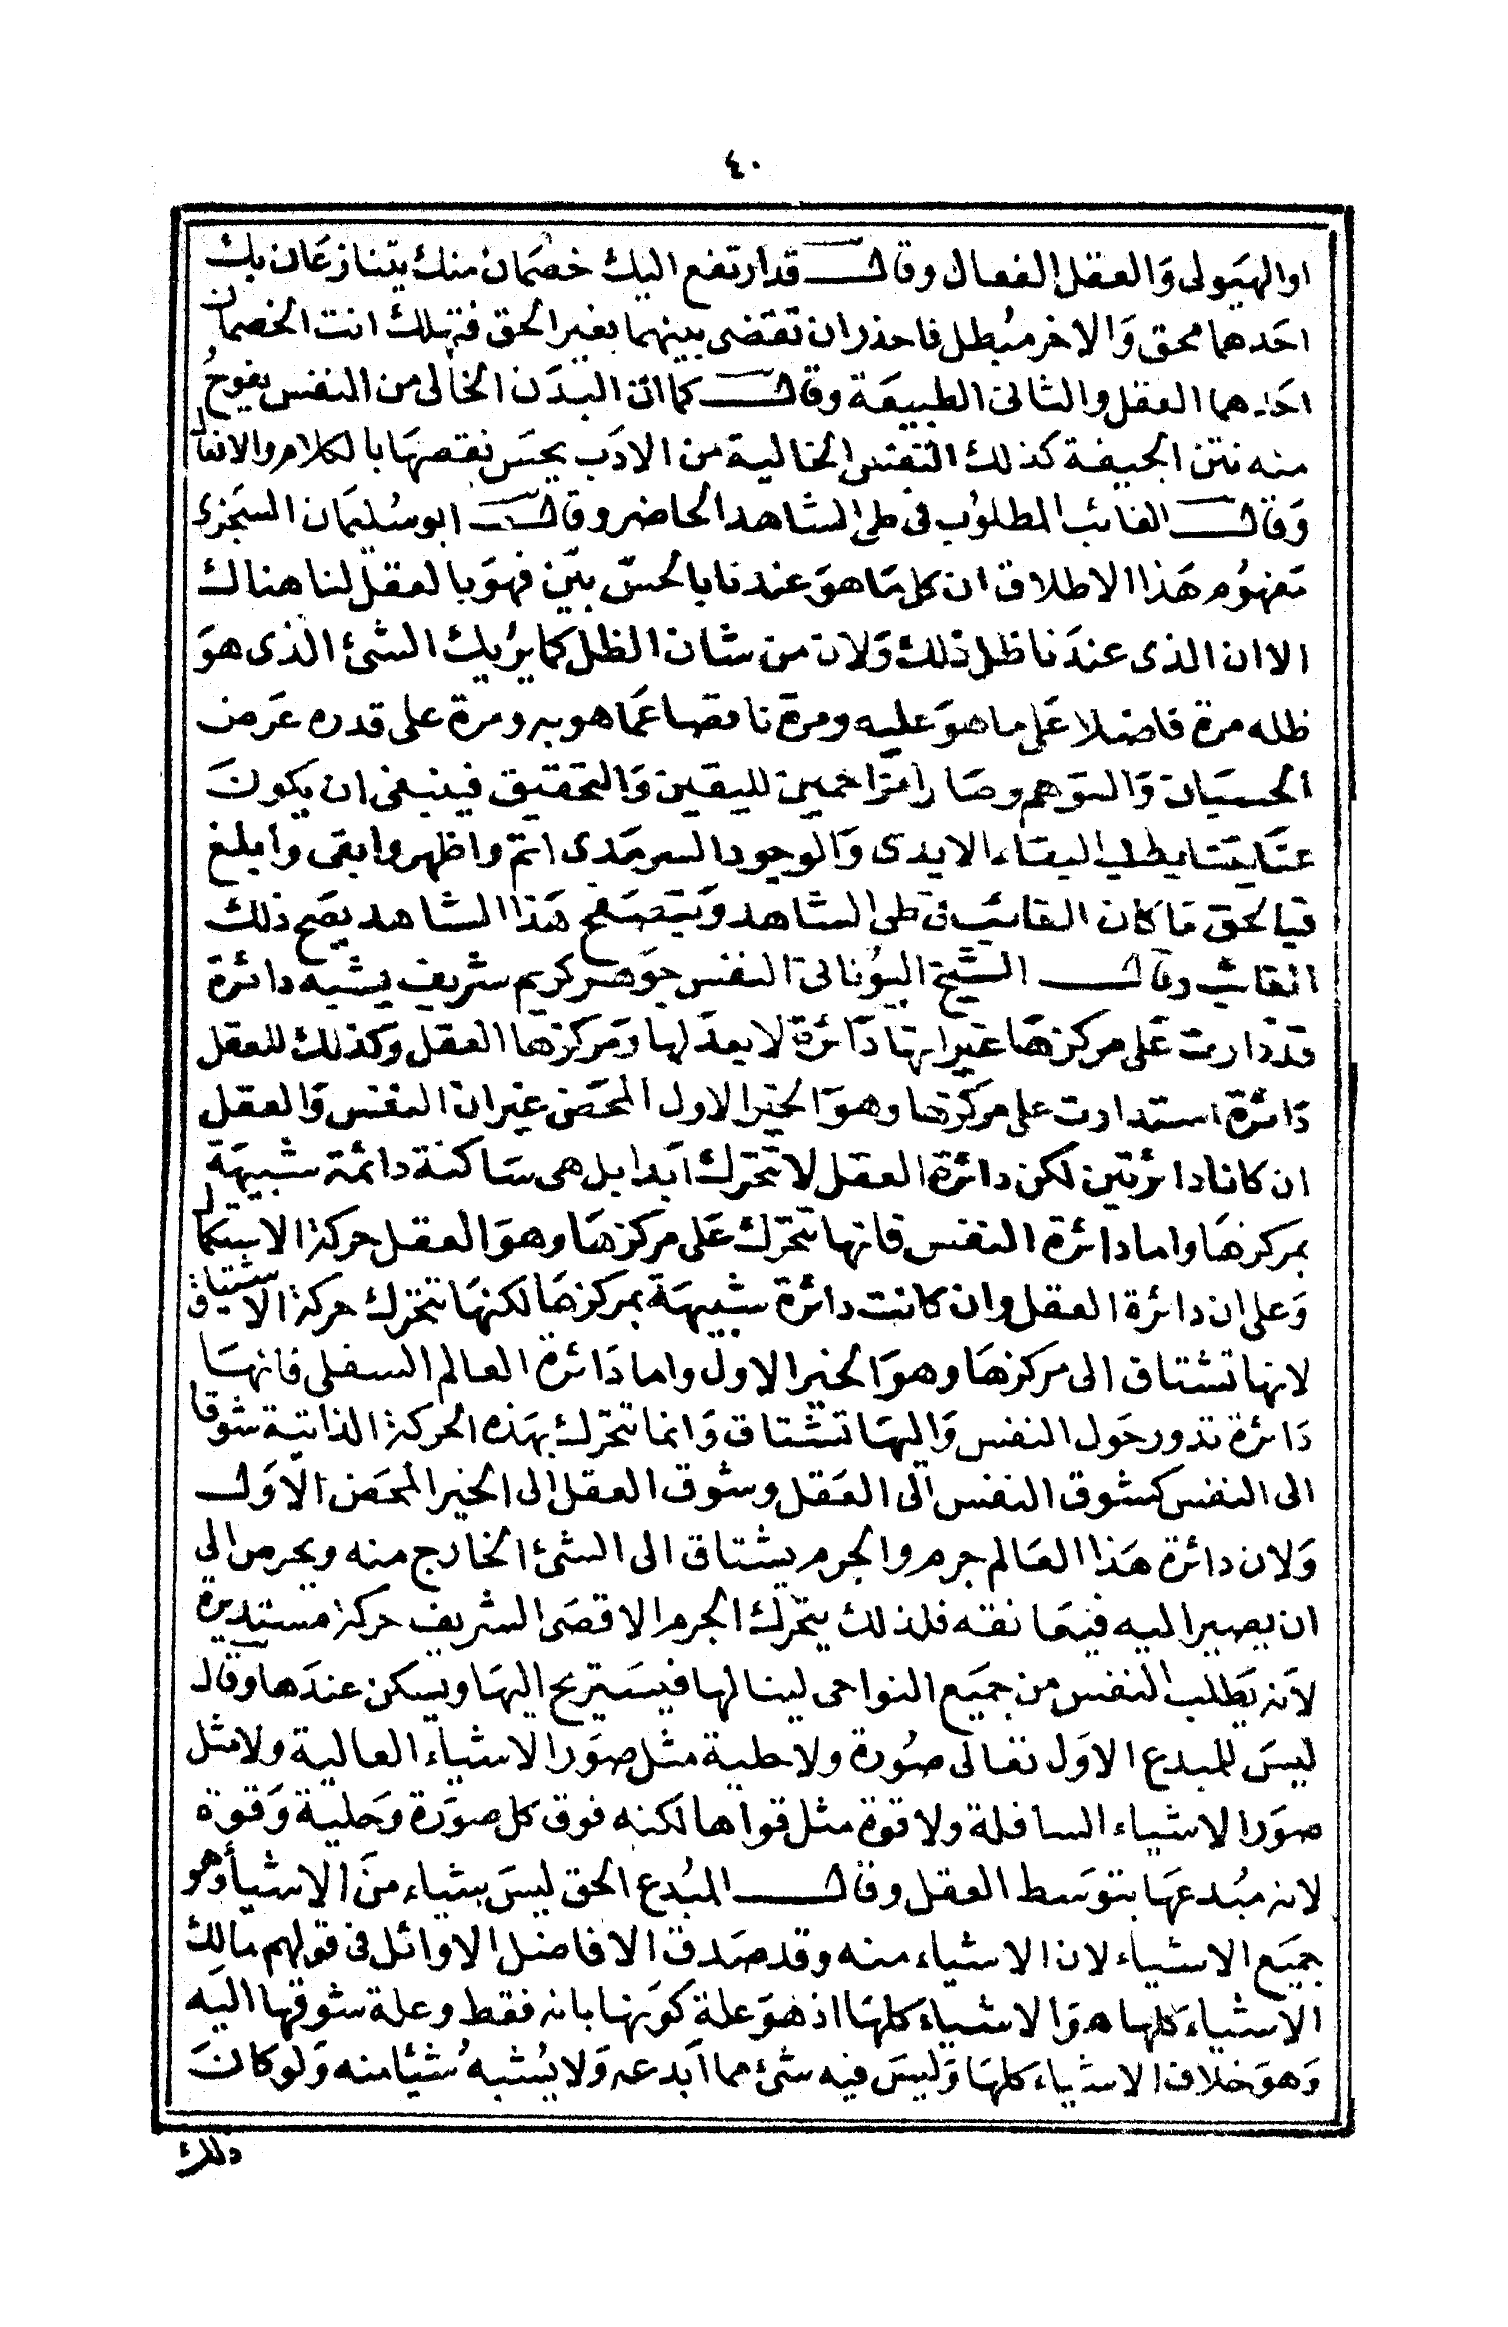 ٤٠
اوالهيولى والعقل الفعال وقال قدارتفع اليك خصمان منك يتنازعان بك
احدهما محق والاخر مبطل فاحذر ان تقضى بينهما بغير الحق فتهلك انت الخصمان
احدهما العقل والثانى الطبيعة وقال كما ان البدن الخالى من النفس يفوح
منه نتن الجيفة كذلك النفس الخالية من الادب يحس نقصها بالكلام والافعال
وقال الغائب المطلوب فى طى الشاهد الحاضر وقال ابو سليمان السجزى
مفهوم هذا الاطلاق ان كل ما هو عندنا بالحس بيّن فهو بالعقل لنا هناك
الا ان الذى عندنا ظل ذلك ولان من شان الظل كما يريك الشئ الذى هو
ظله مرة فاضلا على ما هو عليه ومرة ناقصا عما هو به ومرة على قدره عرض
الحسبان والتوهم وصارا مزاحمين لليقين والتحقيق فينبغى ان يكون
عنايتنا بطلب البقاء الابدى والوجود السرمدى اتم واظهر وابقى وابلغ
فبالحق ما كان الغائب فى طى الشاهد وبتصفح هذا الشاهد يصح ذلك
الغائب وقال الشيخ اليونانى النفس جوهر كريم شريف يشبه دائرة
قد دارت على مركزها غير انها دائرة لا بعد لها ومركزها العقل وكذلك للعقل
دائرة استدارت على مركزها وهو الخير الاول المحض غير ان النفس والعقل
ان كانا دائرتين لكن دائرة العقل لا تتحرك ابدا بل هى ساكنة دائمة شبيهة
بمركزها واما دائرة النفس فانها تتحرك على مركزها وهو العقل حركة الاستكمال
وعلى ان دائرة العقل وان كانت دائرة شبيهة بمركزها لكنها تتحرك حركة الاشتياق
لانها تشتاق الى مركزها وهو الخير الاول واما دائرة العالم السفلى فانها
دائرة تدور حول النفس واليها تشتاق وانما تتحرك بهذه الحركة الذاتية شوقا
الى النفس كشوق النفس الى العقل وشوق العقل الى الخير المحض الاول
ولان دائرة هذا العالم جرم والجرم يشتاق الى الشئ الخارج منه ويحرص الى
ان يصير اليه فيعانقه فلذلك يتحرك الجرم الاقصى الشريف حركة مستديرة
لانه يطلب النفس من جميع النواحى لينالها فيستريح اليها ويسكن عندها وقال
ليس للمبدع الاول تعالى صورة ولا حلية مثل صور الاشياء العالية ولا مثل
صور الاشياء السافلة ولا قوة مثل قواها لكنه فوق كل صورة وحلية وقوة
لانه مبدعها بتوسط العقل وقال المبدع الحق ليس بشياء من الاشياء وهو
جميع الاشياء لان الاشياء منه وقد صدق الافاضل الاوائل فى قولهم مالك
الاشياء كلها هو الاشياء كلها اذ هو علة كونها بانه فقط وعلة شوقها اليه
وهو خلاف الاشياء كلها وليس فيه شئ مما ابدعه ولا يشبه شيئا منه ولو كان
ذلك